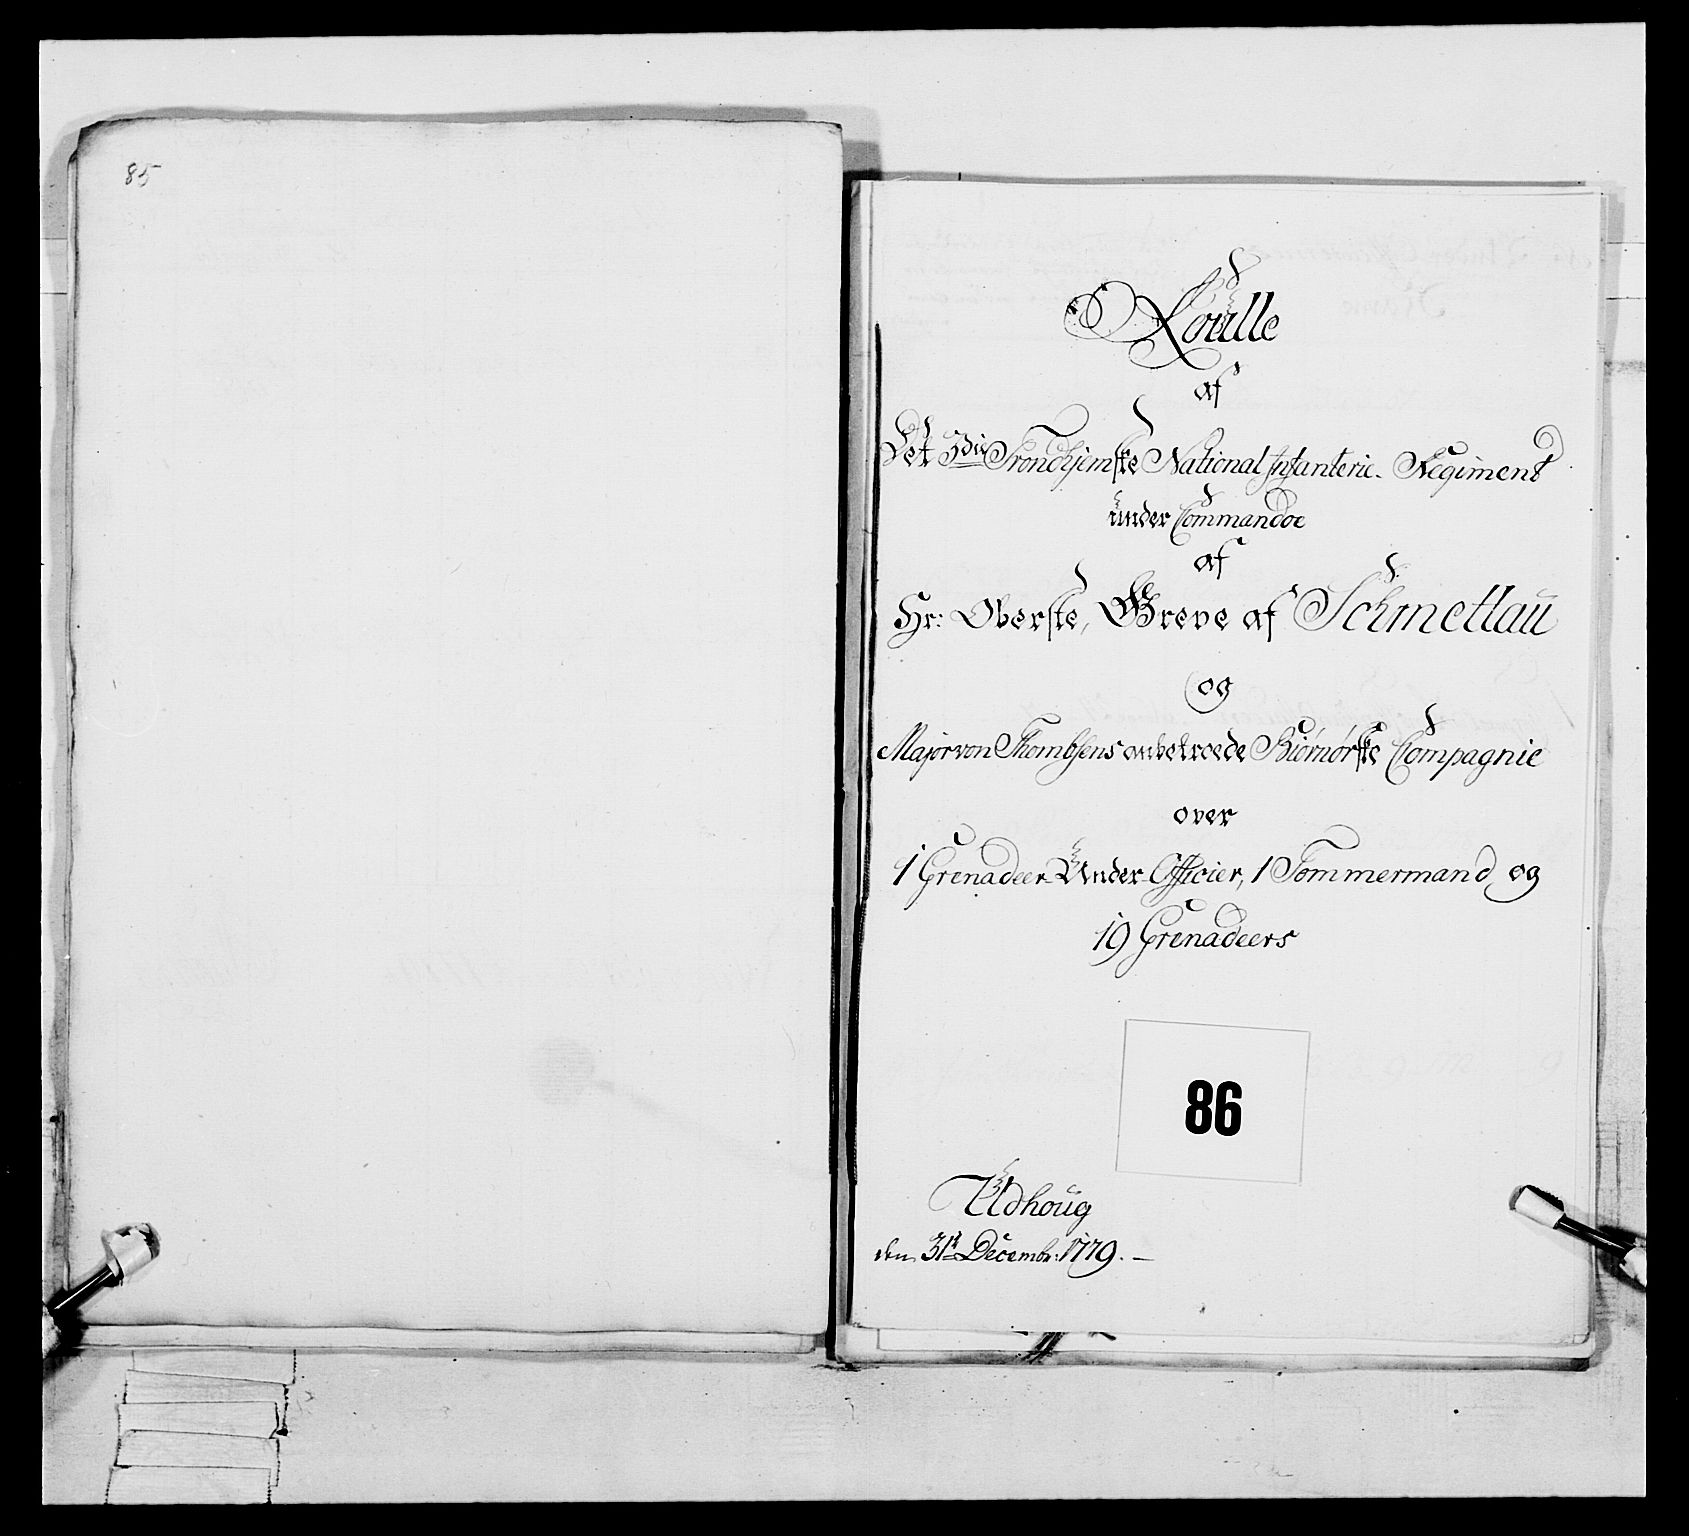 85
Roulle
af
Det 3die Trondhjemske National Infanterie-Regiment
under Commandoe
af
Hr: Oberste, Greve af Schmettau
og
Major von Thombsens anbetroede Biørnørske Compagnie
over
1 Grenadeer-Under-Officier, 1 Tømmermand og
19 Grenadeers
86
Udhoug
den 31te Decembr: 1779. —